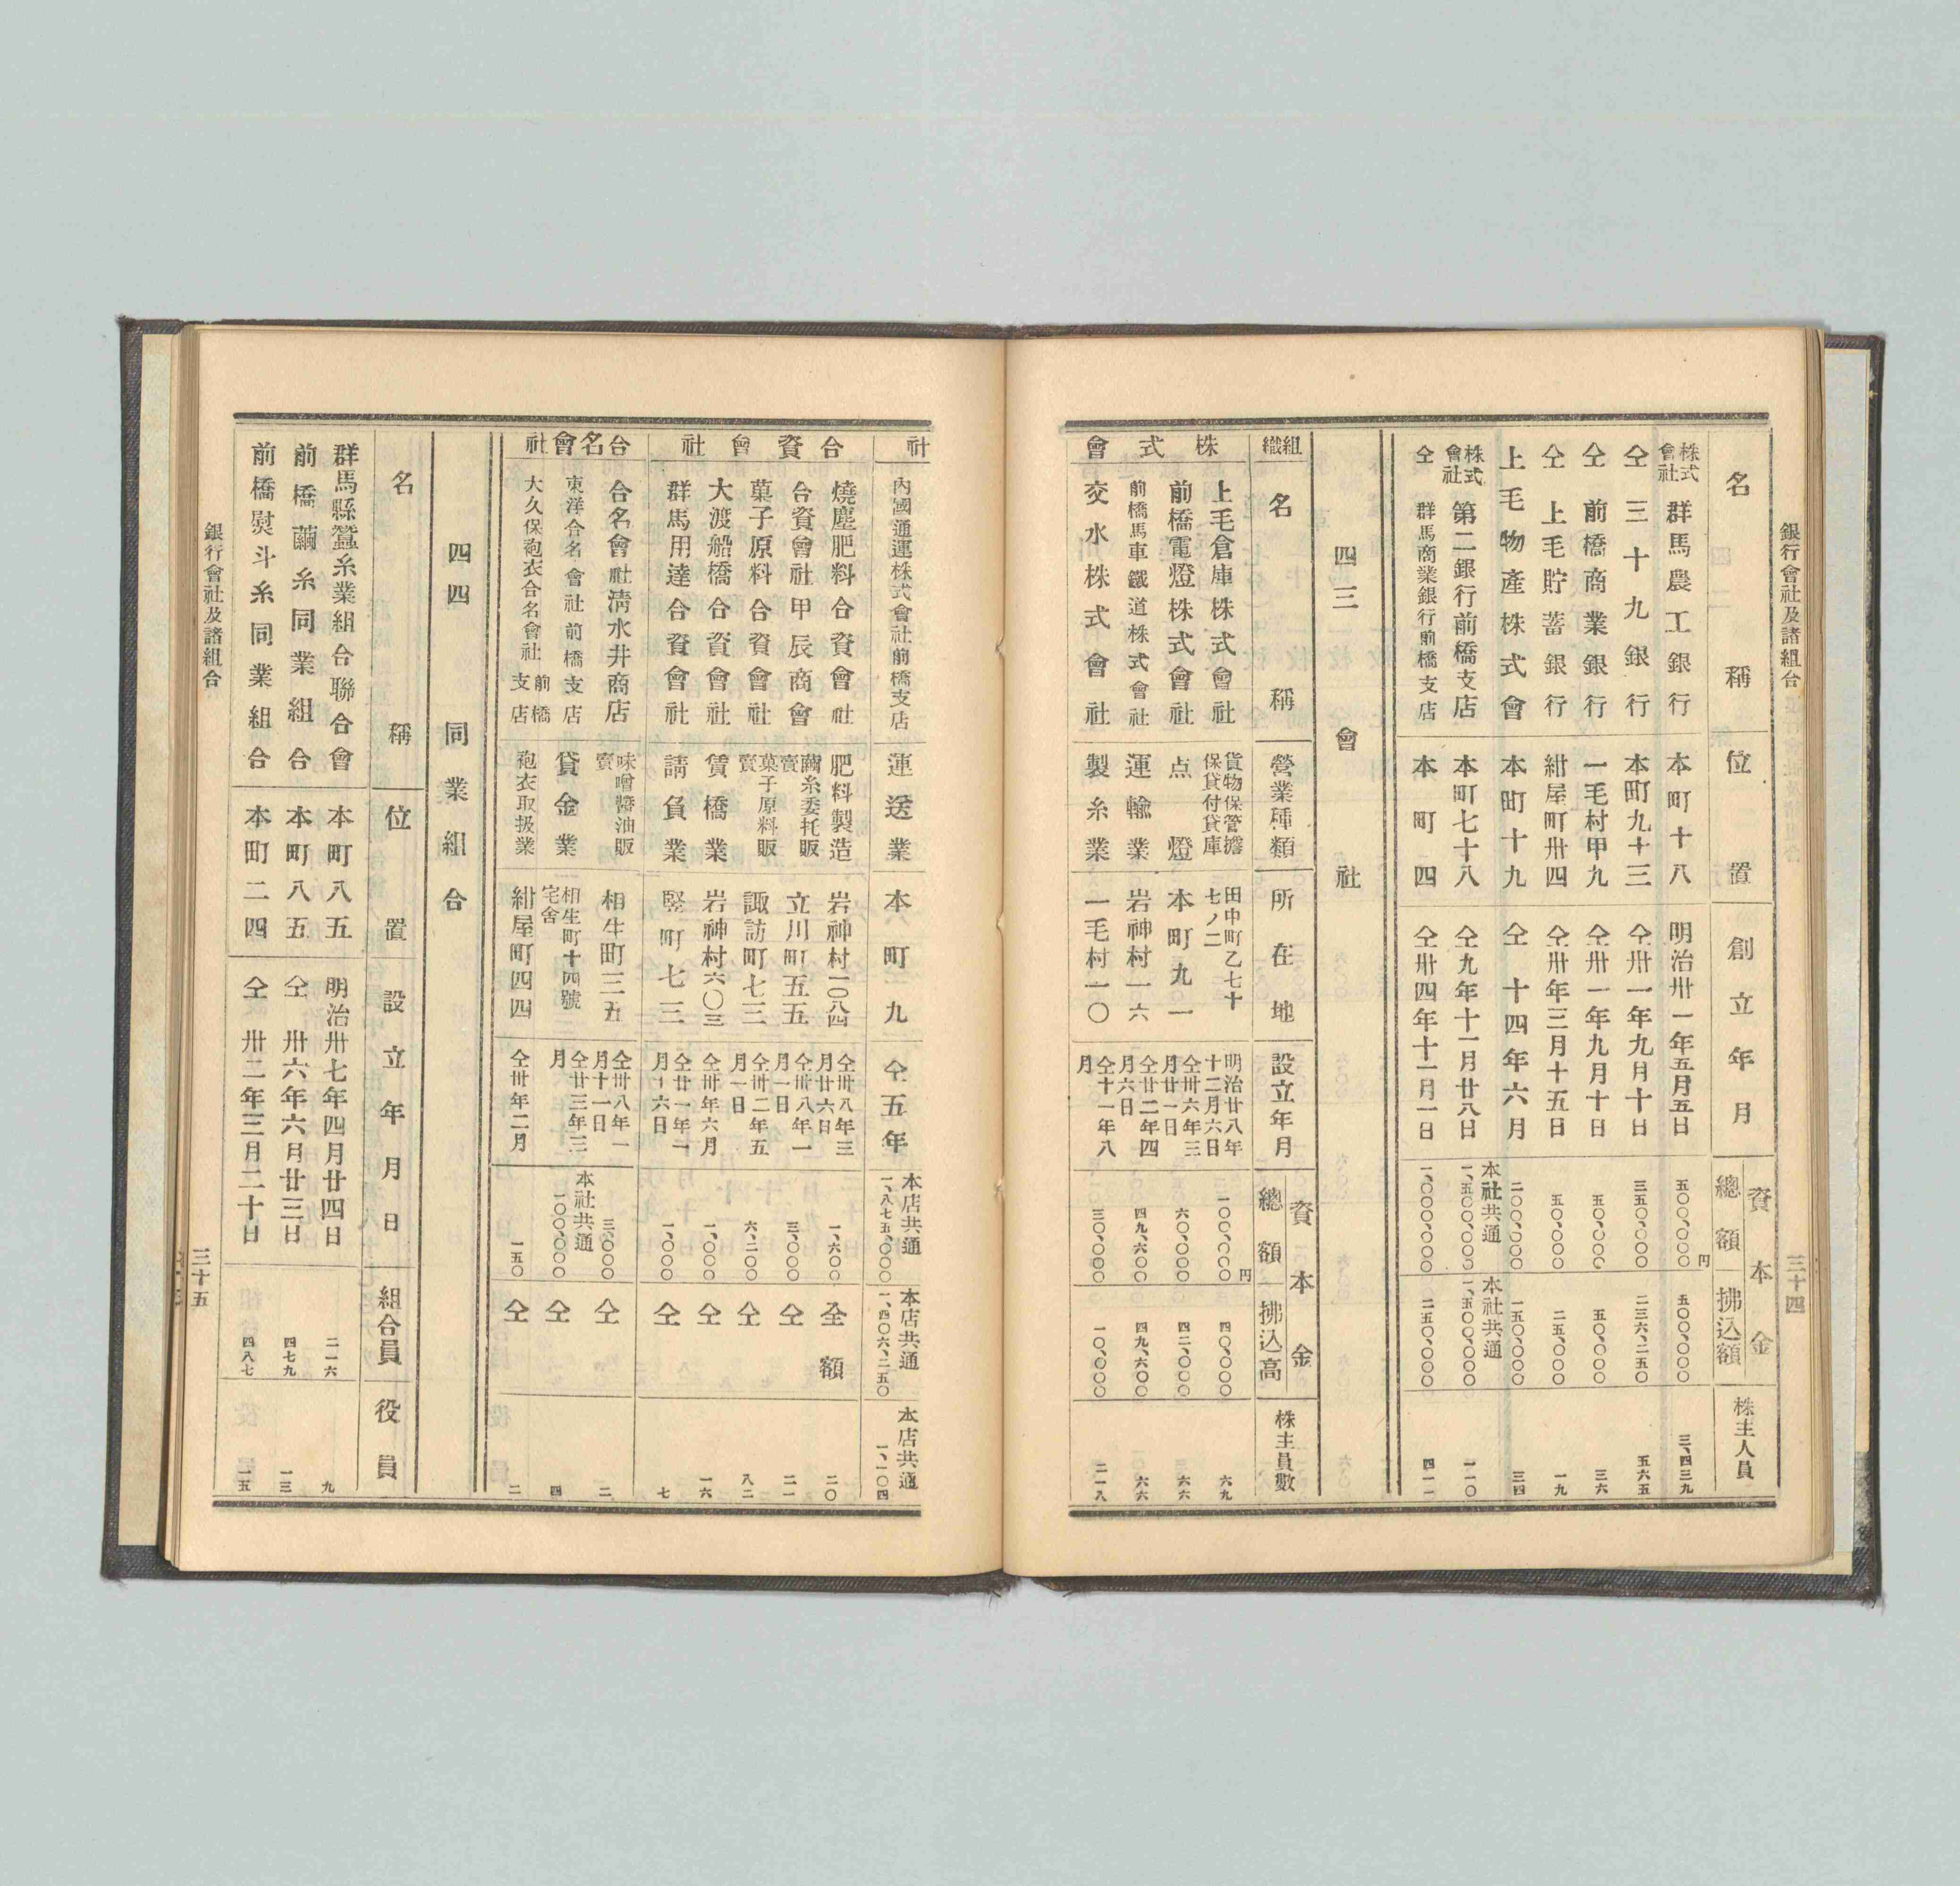 銀行會社及諸組合
三十四
名稱 位置 創立年月 資本金 總額 拂込額 株主人員
株式會社 群馬農工銀行 本町十八 明治卅一年五月五日 五〇〇、〇〇〇円 五〇〇、〇〇〇 三、四三九
仝 三十九銀行 本町九十三 仝卅一年九月十日 三五〇、〇〇〇 二三六、二五〇 五六五
仝 前橋商業銀行 一毛村甲九 仝卅一年九月十日 五〇、〇〇〇 五〇、〇〇〇 三六
仝 上毛貯蓄銀行 紺屋町卅四 仝卅年三月十五日 五〇、〇〇〇 二五、〇〇〇 一九
上毛物產株式會 本町十九 仝十四年六月 二〇〇、〇〇〇 一五〇、〇〇〇 三四
株式會社 第二銀行前橋支店 本町七十八 仝九年十一月廿八日 本社共通 一、五〇〇、〇〇〇 本社共通 一、五〇〇、〇〇〇 一一〇
仝 群馬商業銀行前橋支店 本町四 仝卅四年十一月一日 一、〇〇〇、〇〇〇 二五〇、〇〇〇 四一一
四三 會社
組織 名稱 營業種類 所在地 設立年月 資本金 總額 拂込高 株主員數
株式會
上毛倉庫株式會社 貨物保管擔保貸付貸庫 田中町乙七十七ノ二 明治廿八年十二月六日 一〇〇、〇〇〇円 四〇、〇〇〇 六九
前橋電燈株式會社 点燈 本町九一 仝卅六年三月廿一日 六〇、〇〇〇 四二、〇〇〇 六六
前橋馬車鐵道株式會社 運輸業 岩神村一六 仝廿二年四月六日 四九、六〇〇 四九、六〇〇 六六
交水株式會社 製糸業 一毛村一〇 仝十一年八月 三〇、〇〇〇 一〇、〇〇〇 二一八
社
內國通運株式會社前橋支店 運送業 本町九 仝五年 本店共通 一、八七五、〇〇〇 本店共通 一、四〇六、二五〇 本店共通 一、一〇四
合資會社
燒塵肥料合資會社 肥料製造 岩神村一〇八四 仝卅八年三月廿六日 一、六〇〇 全額 二〇
合資會社甲辰商會 繭糸委托販賣 立川町五五 仝卅八年一月一日 三、〇〇〇 仝 二一
菓子原料合資會社 菓子原料販賣 諏訪町七三 仝卅二年五月一日 六、二〇〇 仝 八二
大渡船橋合資會社 賃橋業 岩神村六〇三 仝卅年六月 一、〇〇〇 仝 一六
群馬用達合資會社 請負業 竪町七三 仝廿一年一月十六日 一、〇〇〇 仝 七
合名會社
合名會社淸水井商店 味噌醬油販賣 相生町三五 仝卅八年一月十一日 三、〇〇〇 仝 二
東洋合名會社前橋支店 貸金業 相生町十四號宅舍 仝廿三年三月 本社共通 一〇〇、〇〇〇 仝 四
大久保袍衣合名會社前橋支店 袍衣取扱業 紺屋町四四 仝卅年二月 一五〇 仝 二
四四 同業組合
名稱 位置 設立年月日 組合員 役員
群馬縣蠶糸業組合聯合會 本町八五 明治卅七年四月廿四日 二一六 九
前橋繭糸同業組合 本町八五 仝卅六年六月廿三日 四七九 一三
前橋熨斗糸同業組合 本町二四 仝卅二年三月二十日 四八七 一五
銀行會社及諸組合
三十五